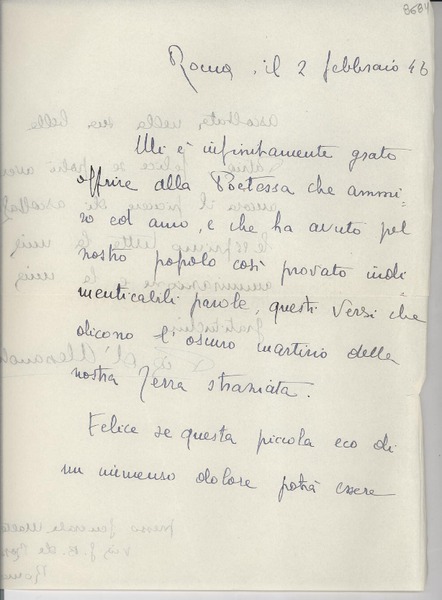 8684
Roma, il 2 febbraio 46
Mi è infinitamente grato
offrire alla Poetessa che ammi
ro ed amo, e che ha avuto pel
nostro popolo così provato indi
menticabili parole, questi versi che
dicono l'oscuro martirio della
nostra Terra straziata.
Felice se questa piccola eco di
un immenso dolore potrà essere